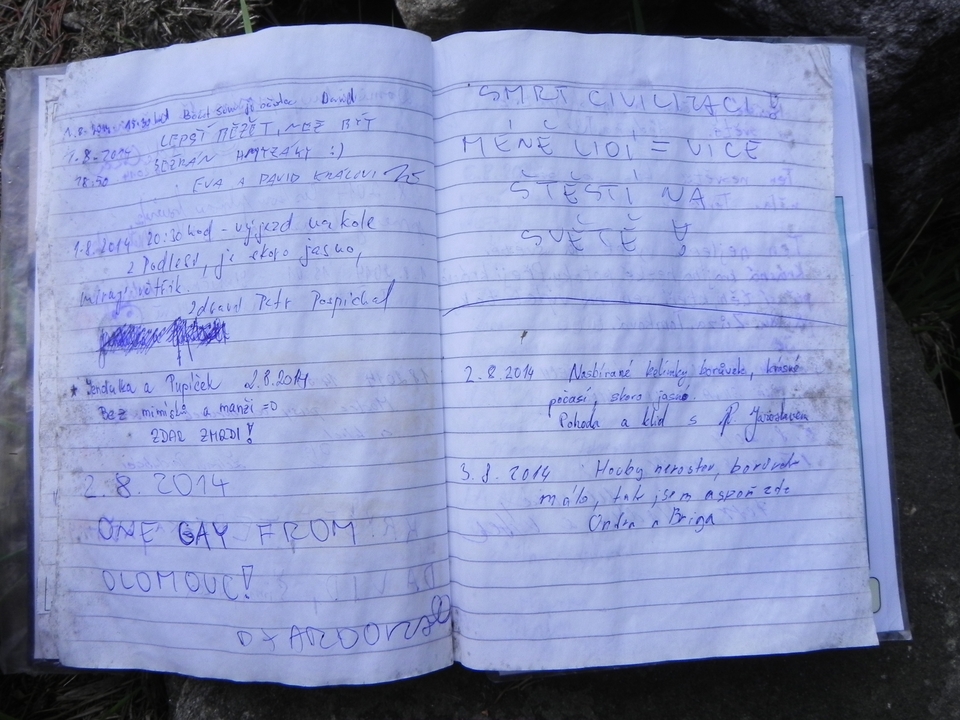 1.8.2014 18:30 hod David
1.8.2014 LEPŠÍ NEŽ BÝT
18:50 :)
EVA A DAVID KRÁLOVI
1.8.2014 20:30 hod - výjezd na kole
z Podlesí, je skoro jasno,
větřík.
zdraví Petr Pospíchal
* Jendulka a Pupíček 2.8.2014
Bez mimísků a manži =0
ZDAR ZMRDI!
2.8.2014
ONE GAY FROM
OLOMOUC!
SMRT CIVILIZACI!
MÉNĚ LIDÍ = VÍCE
ŠTĚSTÍ NA
SVĚTĚ!
2.8.2014 Nasbírané kelímky borůvek, krásné
počasí, skoro jasné
Pohoda a klid s P. Jaroslavem
3.8.2014 Houby nerostou, borůvek
málo, tak jsem aspoň zde
Ondra a Briga